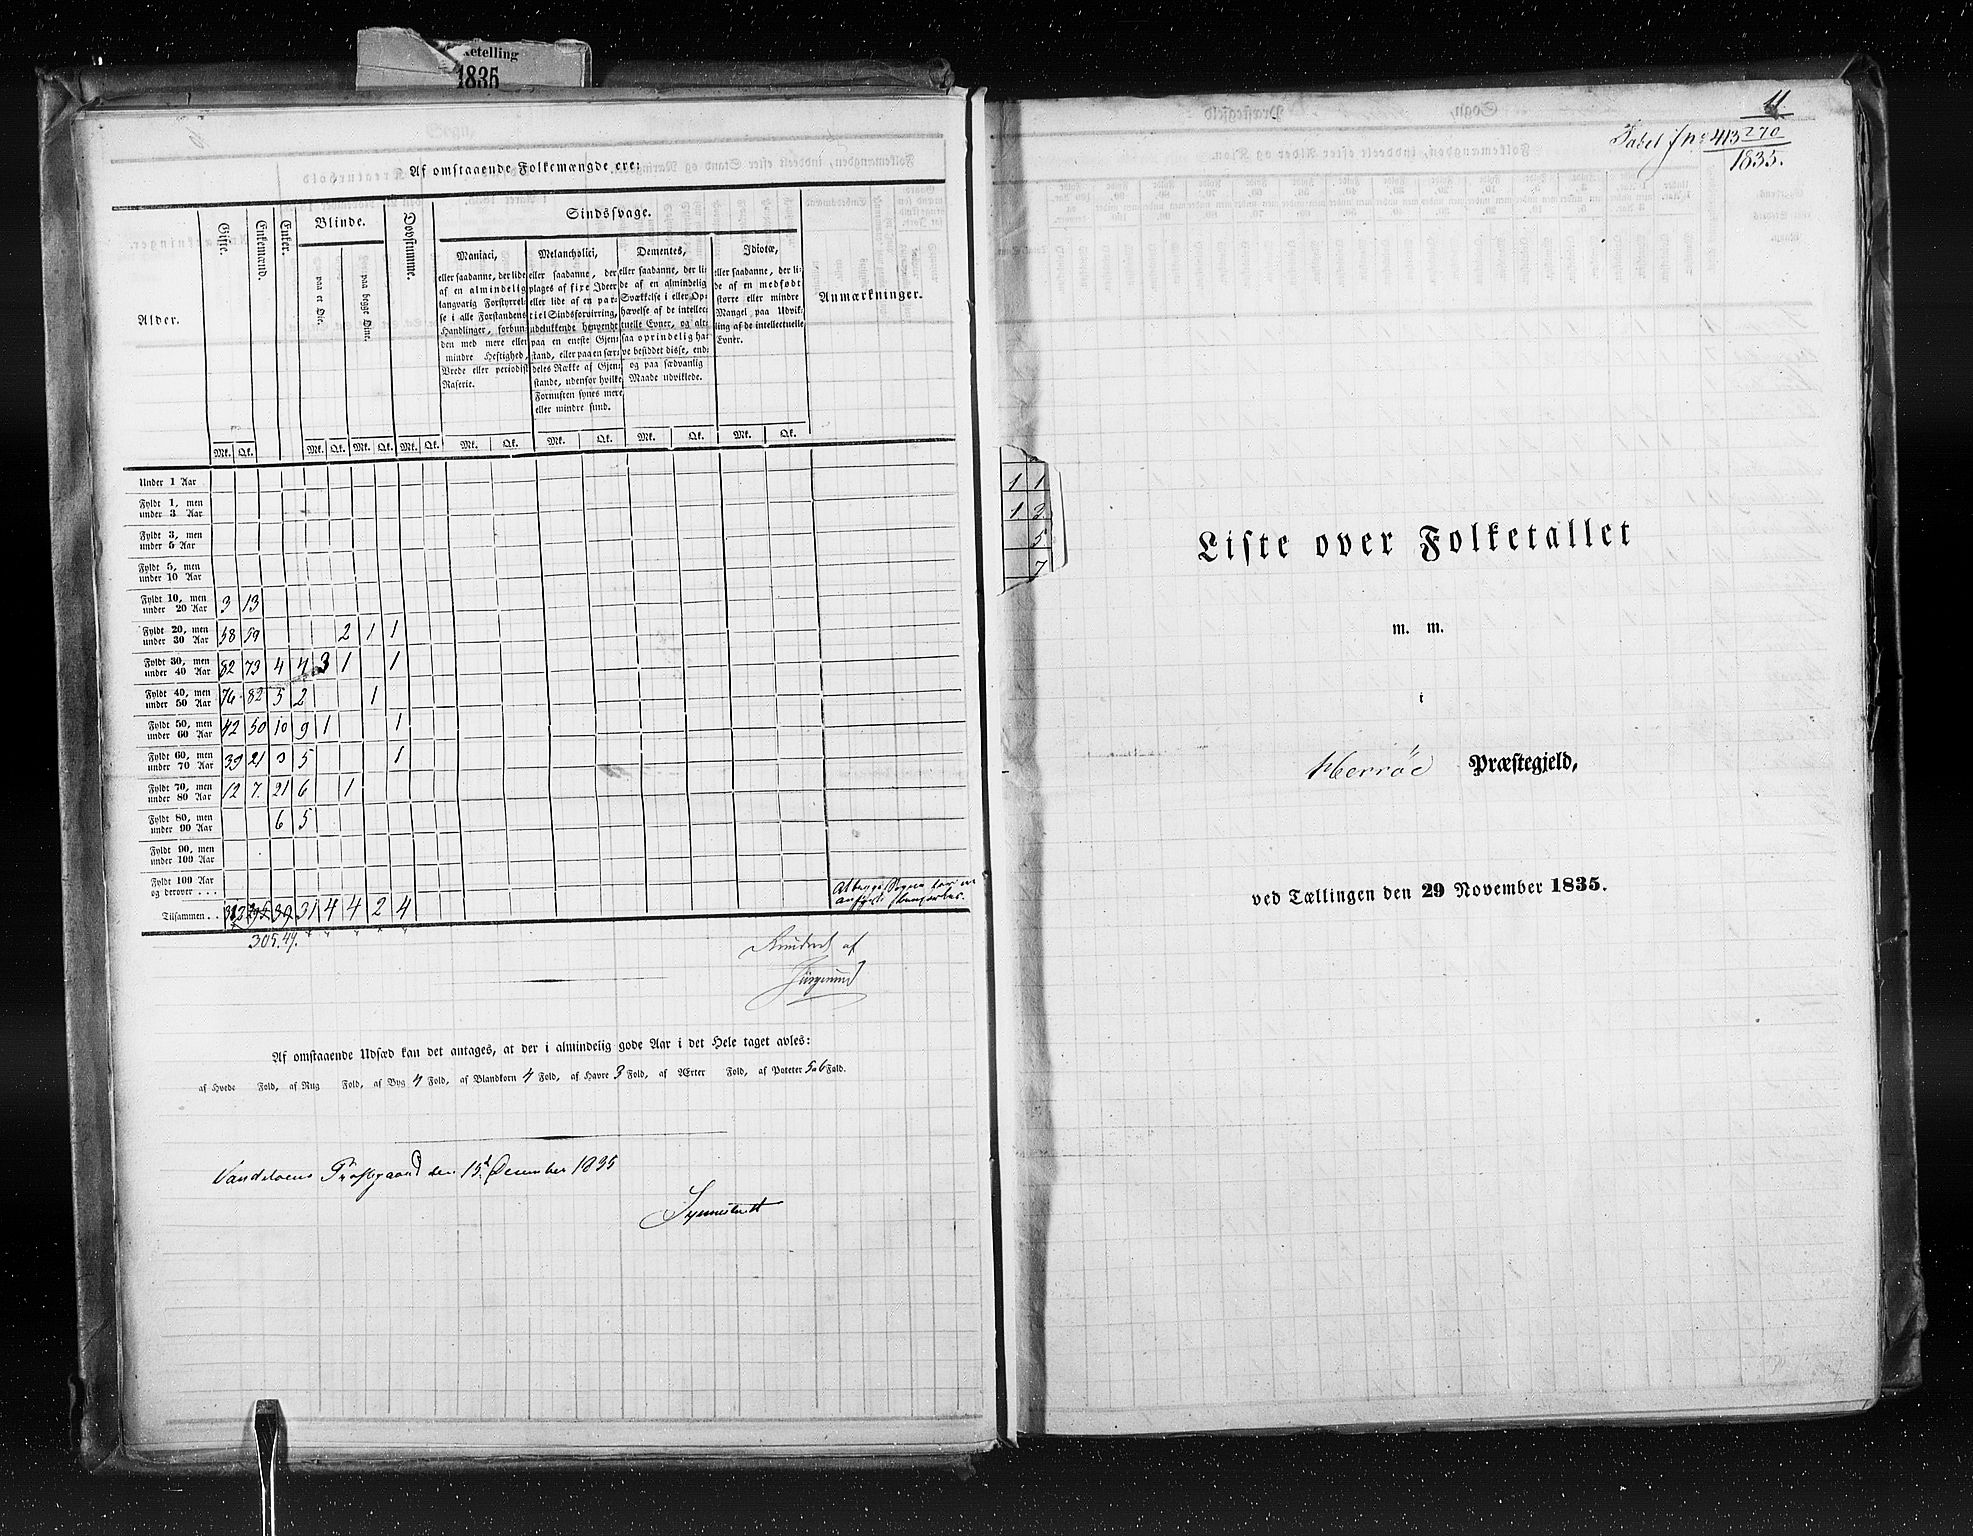 ketelling
1835
Af omstaaende Folkemængde ere:
Alder.
Gifte.
Enkemænd.
Enker.
Blinde.
paa et Øie.
paa begge Øine.
Døvstumme.
Sindssvage.
Maniaci,
eller saadanne, der lide
af en almindelig
langvarig Forstyrrel-
se i alle Forstandens
Handlinger, forbun-
den med mere eller
mindre Heftighed,
Vrede eller periodisk
Raserie.
Melancholici,
eller saadanne, der
plages af fixe Ideer
eller lide af en par-
tiel Sindsforvirring,
udelukkende henvendt
paa en eneste Gjen-
stand, eller paa en sær-
deles Række af Gjen-
stande, udenfor hvilke
Fornuften synes mere
eller mindre sund.
Dementes,
eller saadanne, der li-
de af en almindelig
Svækkelse i eller Op-
hævelse af de intellec-
tuelle Evner, og alt-
saa oprindelig ha-
ve besiddet disse, end-
og paa sædvanlig
Maade udviklede.
Idiotæ,
eller saadanne, der li-
de af en medfødt
større eller mindre
Mangel paa Udvik-
ling af de intellectuelle
Evner.
Anmærkninger.
Mk. Qk. Mk. Qk. Mk. Qk. Mk. Qk. Mk. Qk. Mk. Qk. Mk. Qk. Mk. Qk.
Under 1 Aar
Fyldt 1, men
under 3 Aar
Fyldt 3, men
under 5 Aar
Fyldt 5, men
under 10 Aar
Fyldt 10, men
under 20 Aar 3 13
Fyldt 20, men
under 30 Aar 58 59 2 1 1
Fyldt 30, men
under 40 Aar 82 73 4 4 3 1 1
Fyldt 40, men
under 50 Aar 76 82 5 2 1
Fyldt 50, men
under 60 Aar 42 50 10 9 1 1
Fyldt 60, men
under 70 Aar 39 21 3 5 1
Fyldt 70, men
under 80 Aar 12 7. 21 6 1
Fyldt 80, men
under 90 Aar 6 5
Fyldt 90, men
under 100 Aar
Fyldt 100 Aar
og derover . . .
Tilsammen . . 39 31 4 4 2 4
305. 49.
af
Af omstaaende Udsæd kan det antages, at der i almindelig gode Aar i det Hele taget avles:
af Hvede Fold, af Rug Fold, af Byg 4 Fold, af Blandkorn 4 Fold, af Havre 3 Fold, af Ærter Fold, af Poteter 5 a 6 Fold.
Præstegaard den 15d December 1835
11.
Tabel 413 270
1835.
1 1
1 3
5
7
Liste over Folketallet
m. m.
i
Herröe Præstegjeld,
ved Tællingen den 29 November 1835.